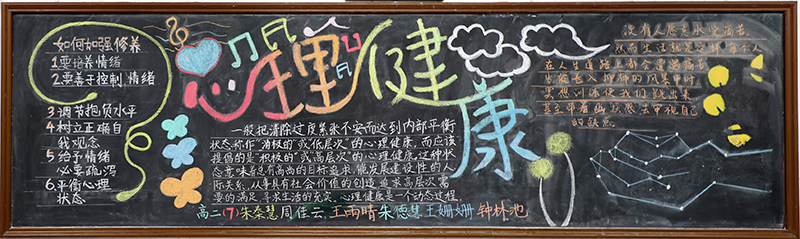 如何加强修养
1要培养情绪
2要善于控制情绪
3调节抱负水平
4树立正确自
我观念
5给予情绪
必要疏泻
6平衡心理
状态
心理健康
一般把清除过度紧张不安而达到内部平衡
状态称作"消极的"或"低层次"的心理健康,而应该
提倡的是"积极的"或"高层次"的心理健康,这种状
态意味着有高尚的目标追求,能发展建设性的人
际关系,从事具有社会价值的创造,追求高层次需
要的满足,寻求生活的充实,心理健康是一个动态过程.
高二(7)朱秦慧 周佳云 王雨晴 朱德慧 王姗姗 钟林池
没有人愿意承受痛苦
然而生活就是这样,每个人
在人生道路上都会遭遇痛苦